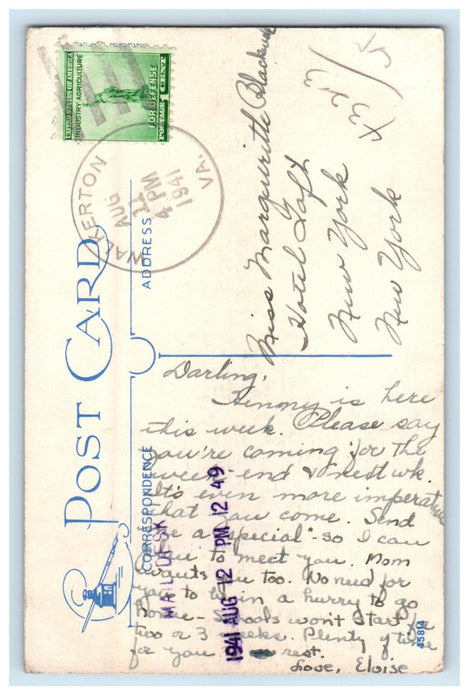 UNITED STATES OF AMERICA
INDUSTRY AGRICULTURE
FOR DEFENSE
POSTAGE 1 CENT
WALKERTON
AUG
11
4 PM
1941
VA.
POST CARD
ADDRESS
CORRESPONDENCE
Miss Marguerith
Hotel Taft
New York
New York
MAIL DESK
1941 AUG 12 PM 12 49
45814
Darling,
is here
this week. Please say
you're coming for the
week end & next wk.
It's even more imperative
that you come. Send
me a "special" - so I can
to meet you. Mom
wants you too. No need for
you to be in a hurry to go
home - schools won't start for
two or 3 weeks. Plenty of time
for you rest.
Love, Eloise